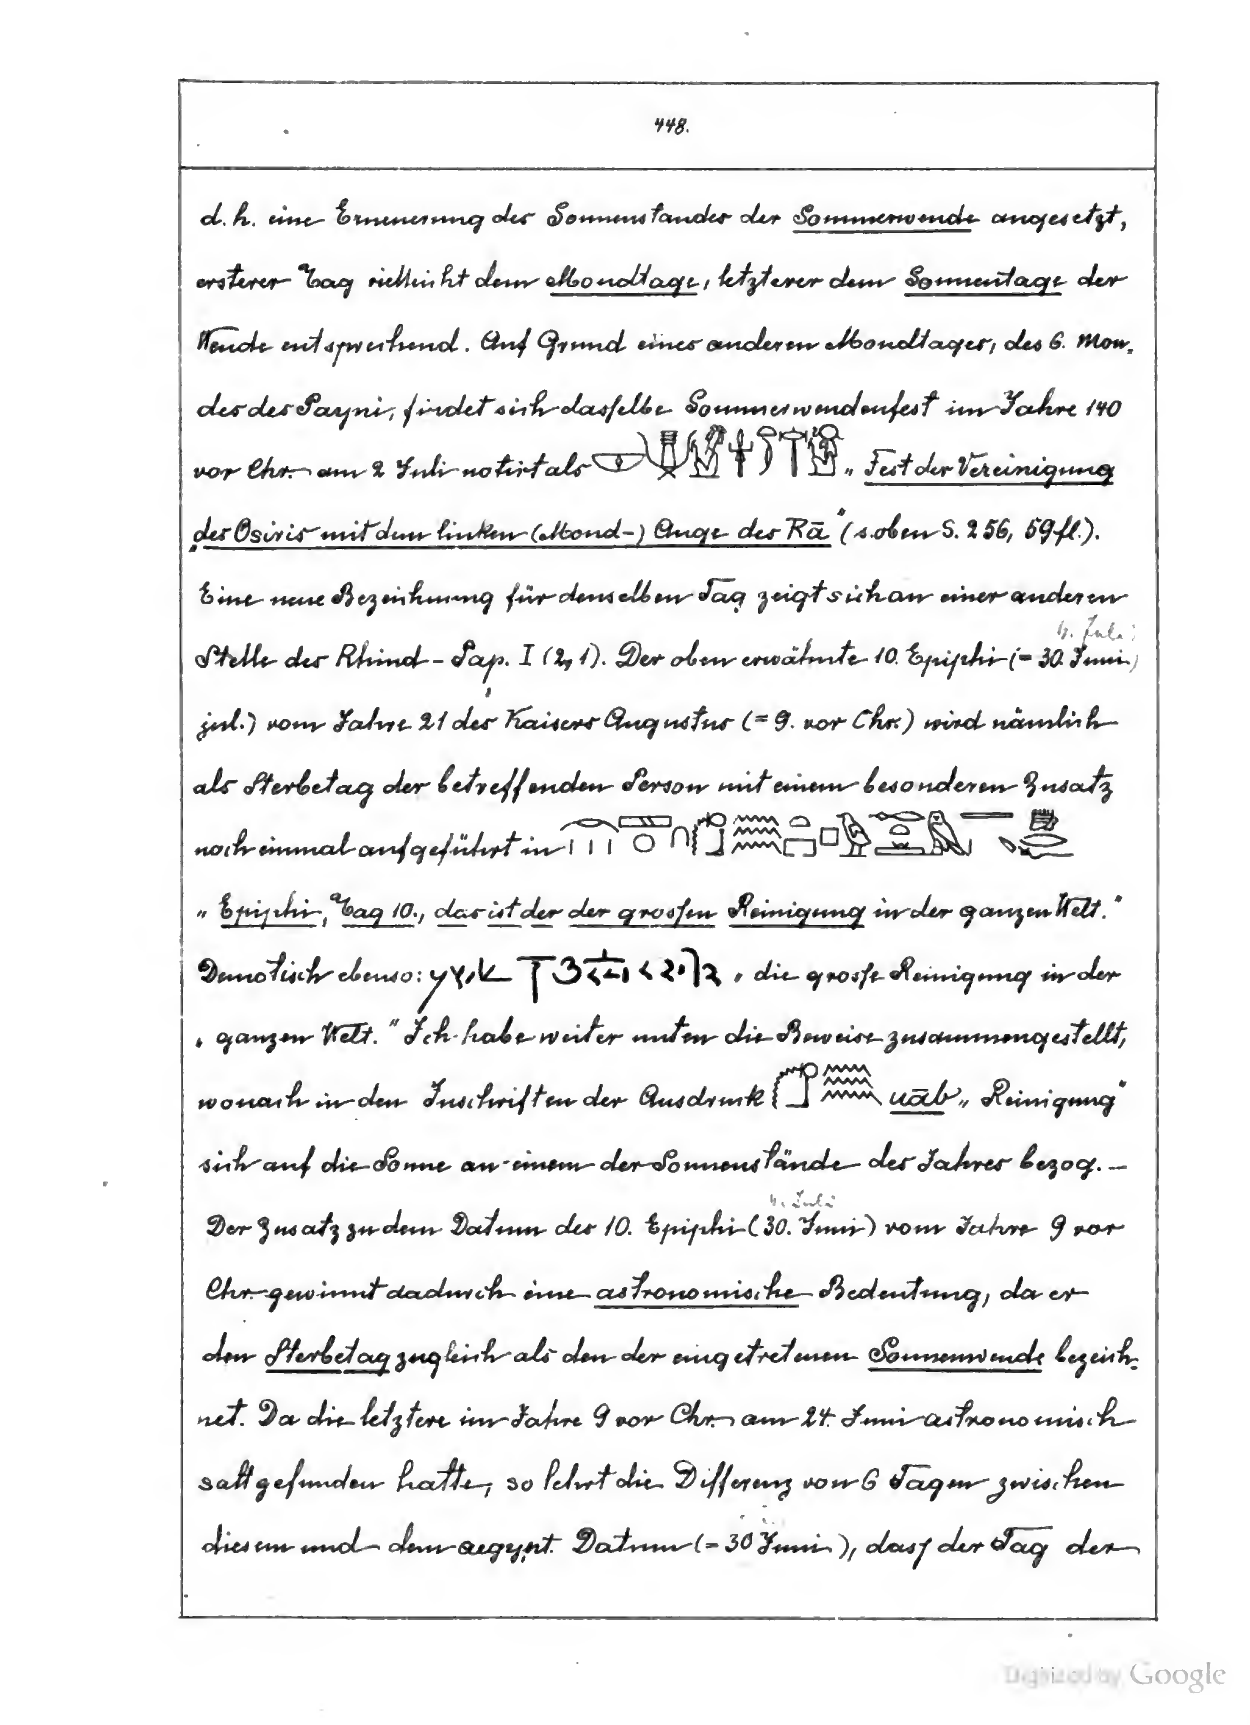 448.
d. h. eine Erneuerung des Sonnenstandes der Sommerwende angesetzt,
ersterer Tag vielleicht dem Mondtage, letzterer dem Sonnentage der
Wende entsprechend. Auf Grund eines anderen Mondtages, des 6. Mon-
des des Payni, findet sich dasselbe Sommerwendenfest im Jahre 140
vor Chr. am 2 Juli notirt als „Fest der Vereinigung
„des Osiris mit dem linken (Mond-) Auge des Rā“ (s. oben S. 256, 59 fl.).
Eine neue Bezeichnung für denselben Tag zeigt sich an einer anderen
4. Juli
Stelle des Rhind-Pap. I (2, 1). Der oben erwähnte 10. Epiphi (= 30. Juni
jul.) vom Jahre 21 des Kaisers Augustus (= 9. vor Chr.) wird nämlich
als Sterbetag der betreffenden Person mit einem besonderen Zusatz
noch einmal aufgeführt in
„Epiphi, Tag 10., das ist der der grossen Reinigung in der ganzen Welt.“
Demotisch ebenso: „die grosse Reinigung in der
„ganzen Welt.“ Ich habe weiter unten die Beweise zusammengestellt,
wonach in den Inschriften der Ausdruck uāb „Reinigung“
sich auf die Sonne an einem der Sonnenstände des Jahres bezog. –
4. Juli
Der Zusatz zu dem Datum des 10. Epiphi (30. Juni) vom Jahre 9 vor
Chr. gewinnt dadurch eine astronomische Bedeutung, da er
den Sterbetag zugleich als den der eingetretenen Sonnenwende bezeich-
net. Da die letztere im Jahre 9 vor Chr. am 24. Juni astronomisch
satt gefunden hatte, so lehrt die Differenz von 6 Tagen zwischen
diesem und dem aegypt. Datum (= 30 Juni), dass der Tag der
Digitized by Google